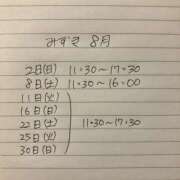 みずき 8月
2日(日) 11:30~17:30
8日(土) 11:30~16:00
11日(火)
16日(日)
22日(土) 11:30~17:30
25日(火)
30日(日)